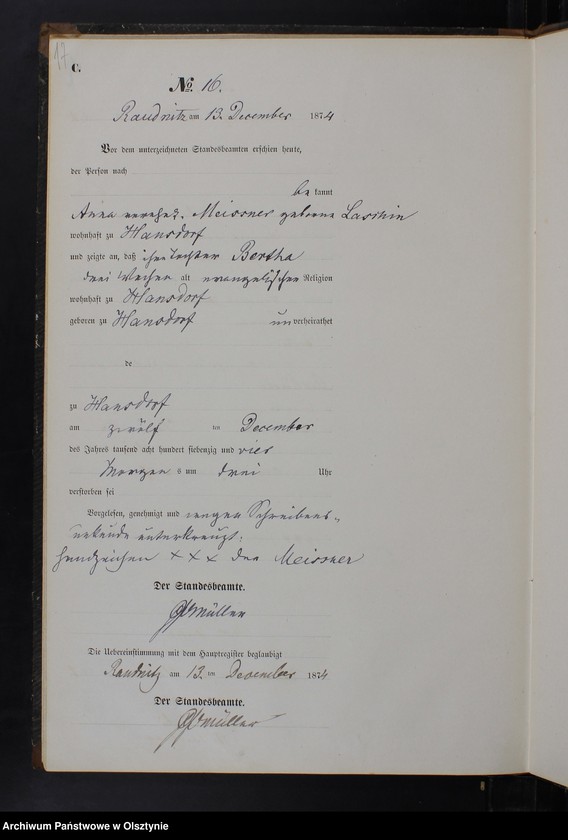 17
C.
No. 16.
Raudnitz am 13. December 1874
Vor dem unterzeichneten Standesbeamten erschien heute,
der Person nach
be kannt
Anna verehe. Meissner geborne
wohnhaft zu Hansdorf
und zeigte an, daß ihre Tochter Bertha
drei Wochen alt evangelischer Religion
wohnhaft zu Hansdorf
geboren zu Hansdorf un verheirathet
de
zu Hansdorf
am zwölf ten December
des Jahres tausend acht hundert siebenzig und vier
Morgens um drei Uhr
verstorben sei
Vorgelesen, genehmigt und wegen Schreibens-
unkunde unterkreuzt.
Handzeichen + + + der Meissner
Der Standesbeamte.
Müller
Die Uebereinstimmung mit dem Hauptregister beglaubigt
Raudnitz am 13. ten December 1874
Der Standesbeamte.
Müller
Archiwum Państwowe w Olsztynie